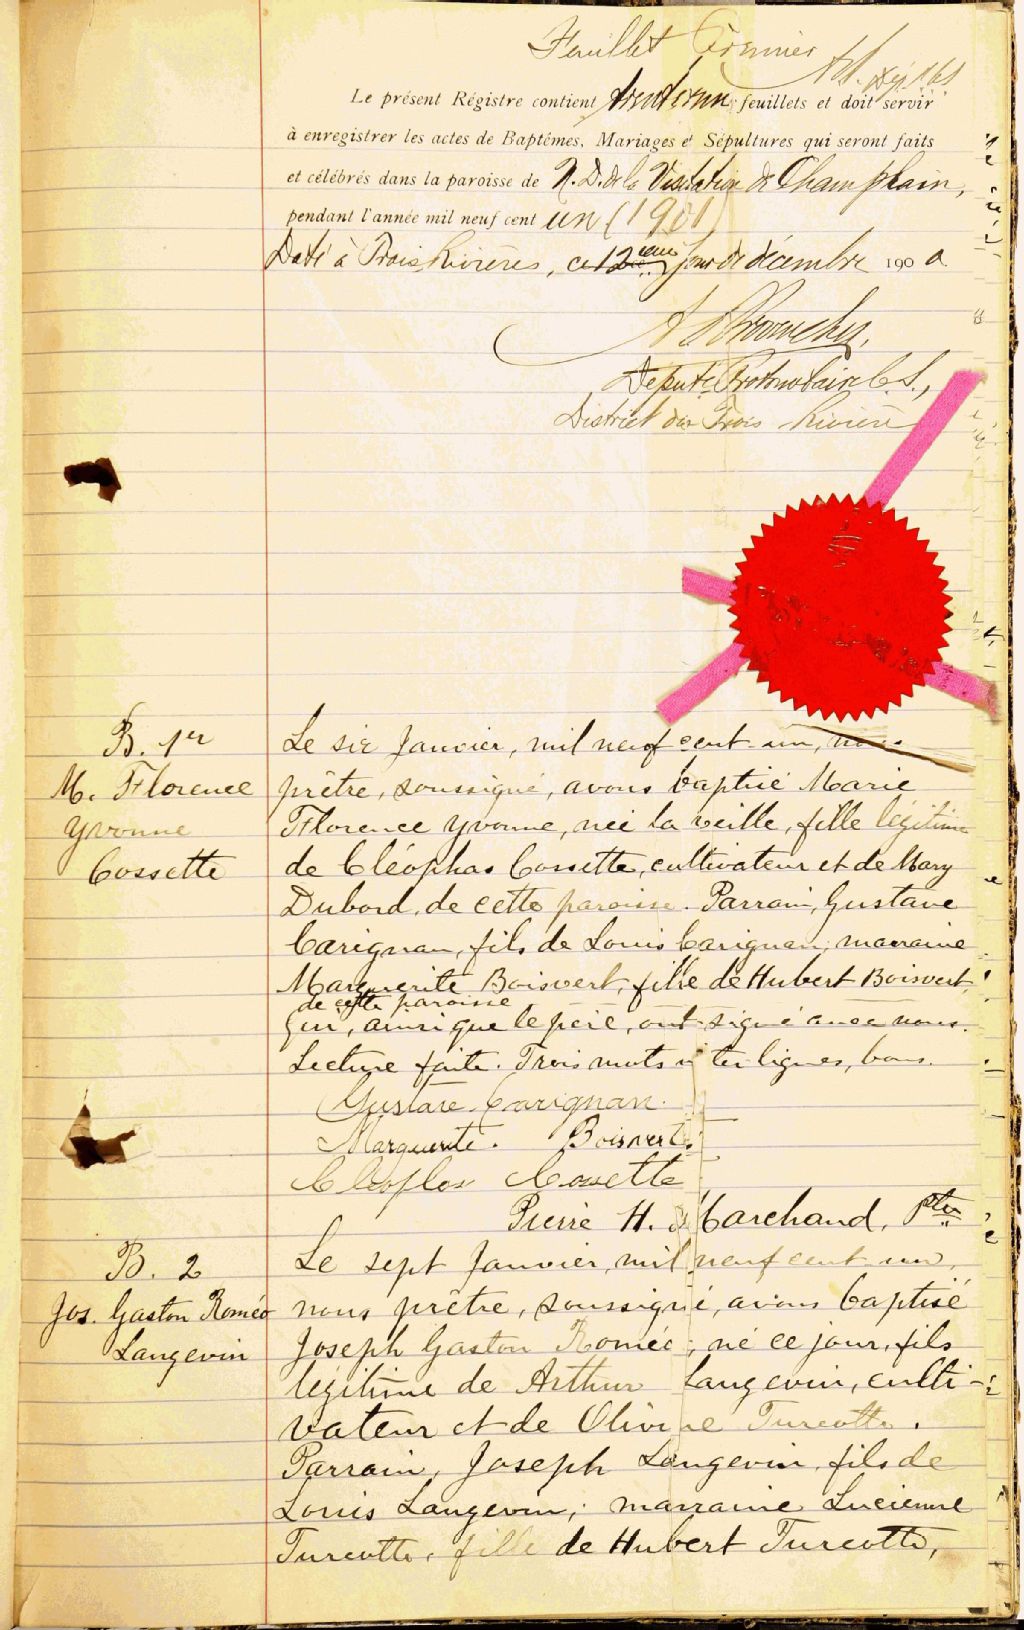 Feuillet Premier
Le présent Régistre contient trente-un feuillets et doit servir
à enregistrer les actes de Baptêmes, Mariages et Sépultures qui seront faits
et célébrés dans la paroisse de N. D. de la Visitation de Champlain,
pendant l'année mil neuf cent un (1901)
Daté à Trois Rivières, ce 12 ième jour de décembre 1900
Député Protonotaire C. S.,
District des Trois Rivières
B. 1er
M. Florence
Yvonne
Cossette
Le six Janvier, mil neuf cent un, nous
prêtre, soussigné, avons baptisé Marie
Florence Yvonne, née la veille, fille légitime
de Cléophas Cossette, cultivateur et de Mary
Dubord, de cette paroisse. Parrain, Gustave
Carignan, fils de Louis Carignan, marraine
Marguerite Boisvert, fille de Hubert Boisvert,
de cette paroisse
qui, ainsi que le père, ont signé avec nous.
Lecture faite. Trois mots inter lignes, bons.
Gustave Carignan.
Marguerite. Boisvert.
Cléophas Cossette
Pierre H. Marchand, Ptre
B. 2
Jos. Gaston Roméo
Langevin
Le sept Janvier, mil neuf cent un,
nous prêtre, soussigné, avons baptisé
Joseph Gaston Roméo, né ce jour, fils
légitime de Arthur Langevin, culti-
vateur et de Olivine Turcotte.
Parrain, Joseph Langevin, fils de
Louis Langevin; marraine Lucienne
Turcotte, fille de Hubert Turcotte,